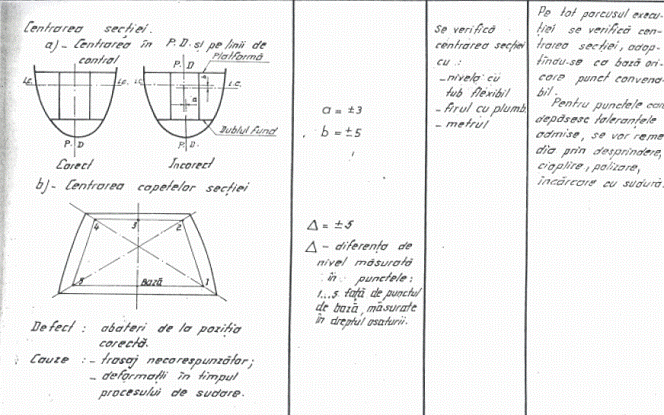 Centrarea secției.
a) - Centrarea în P.D. și pe linii de
control
P. D
Platformă
L.C.
L.C.
L.C.
L.C.
a
Dublul fund
P. D
P. D.
Corect
Incorect
b) - Centrarea capetelor secției
4
3
2
5
Bază
1
Defect : abateri de la poziția
corectă.
Cauze : - trasaj necorespunzător;
- deformații în timpul
procesului de sudare.
a = ±3
b = ±5
Δ = ±5
Δ - diferența de
nivel măsurată
în punctele:
1...5 față de punctul
de bază, măsurate
în dreptul osaturii.
Se verifică
centrarea secției
cu :
- nivela cu
tub flexibil
- firul cu plumb.
- metrul
Pe tot parcusul execu-
ției se verifică cen-
trarea secției, adop-
tîndu-se ca bază ori-
care punct convena-
bil.
Pentru punctele car
depășesc toleranțele
admise, se vor reme
dia prin desprindere,
cioplire, polizare,
încărcare cu sudură.